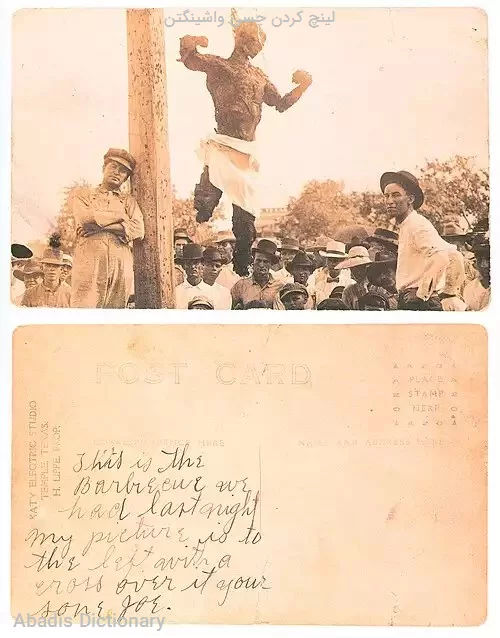 لینچ کردن جسی واشینگتن
POST CARD
PLACE
STAMP
HERE
KATY ELECTRIC STUDIO
TEMPLE, TEXAS.
H. LIPPE, PROP.
CORRESPONDENCE HERE
NAME AND ADDRESS HERE
This is the
Barbecue we
had last night
my picture is to
the left with a
cross over it your
sone Joe.
Abadis Dictionary